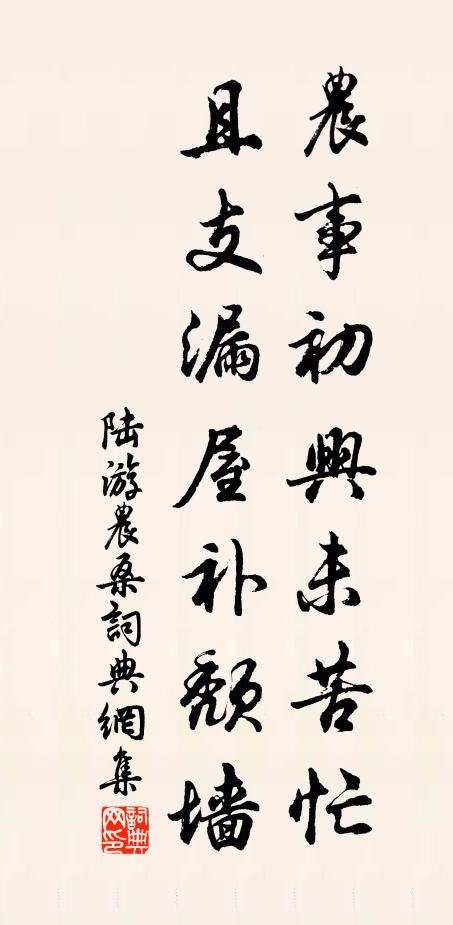 農事初興未苦忙
且支漏屋补頽墙
陆游農桑詞典網集
詞典網印